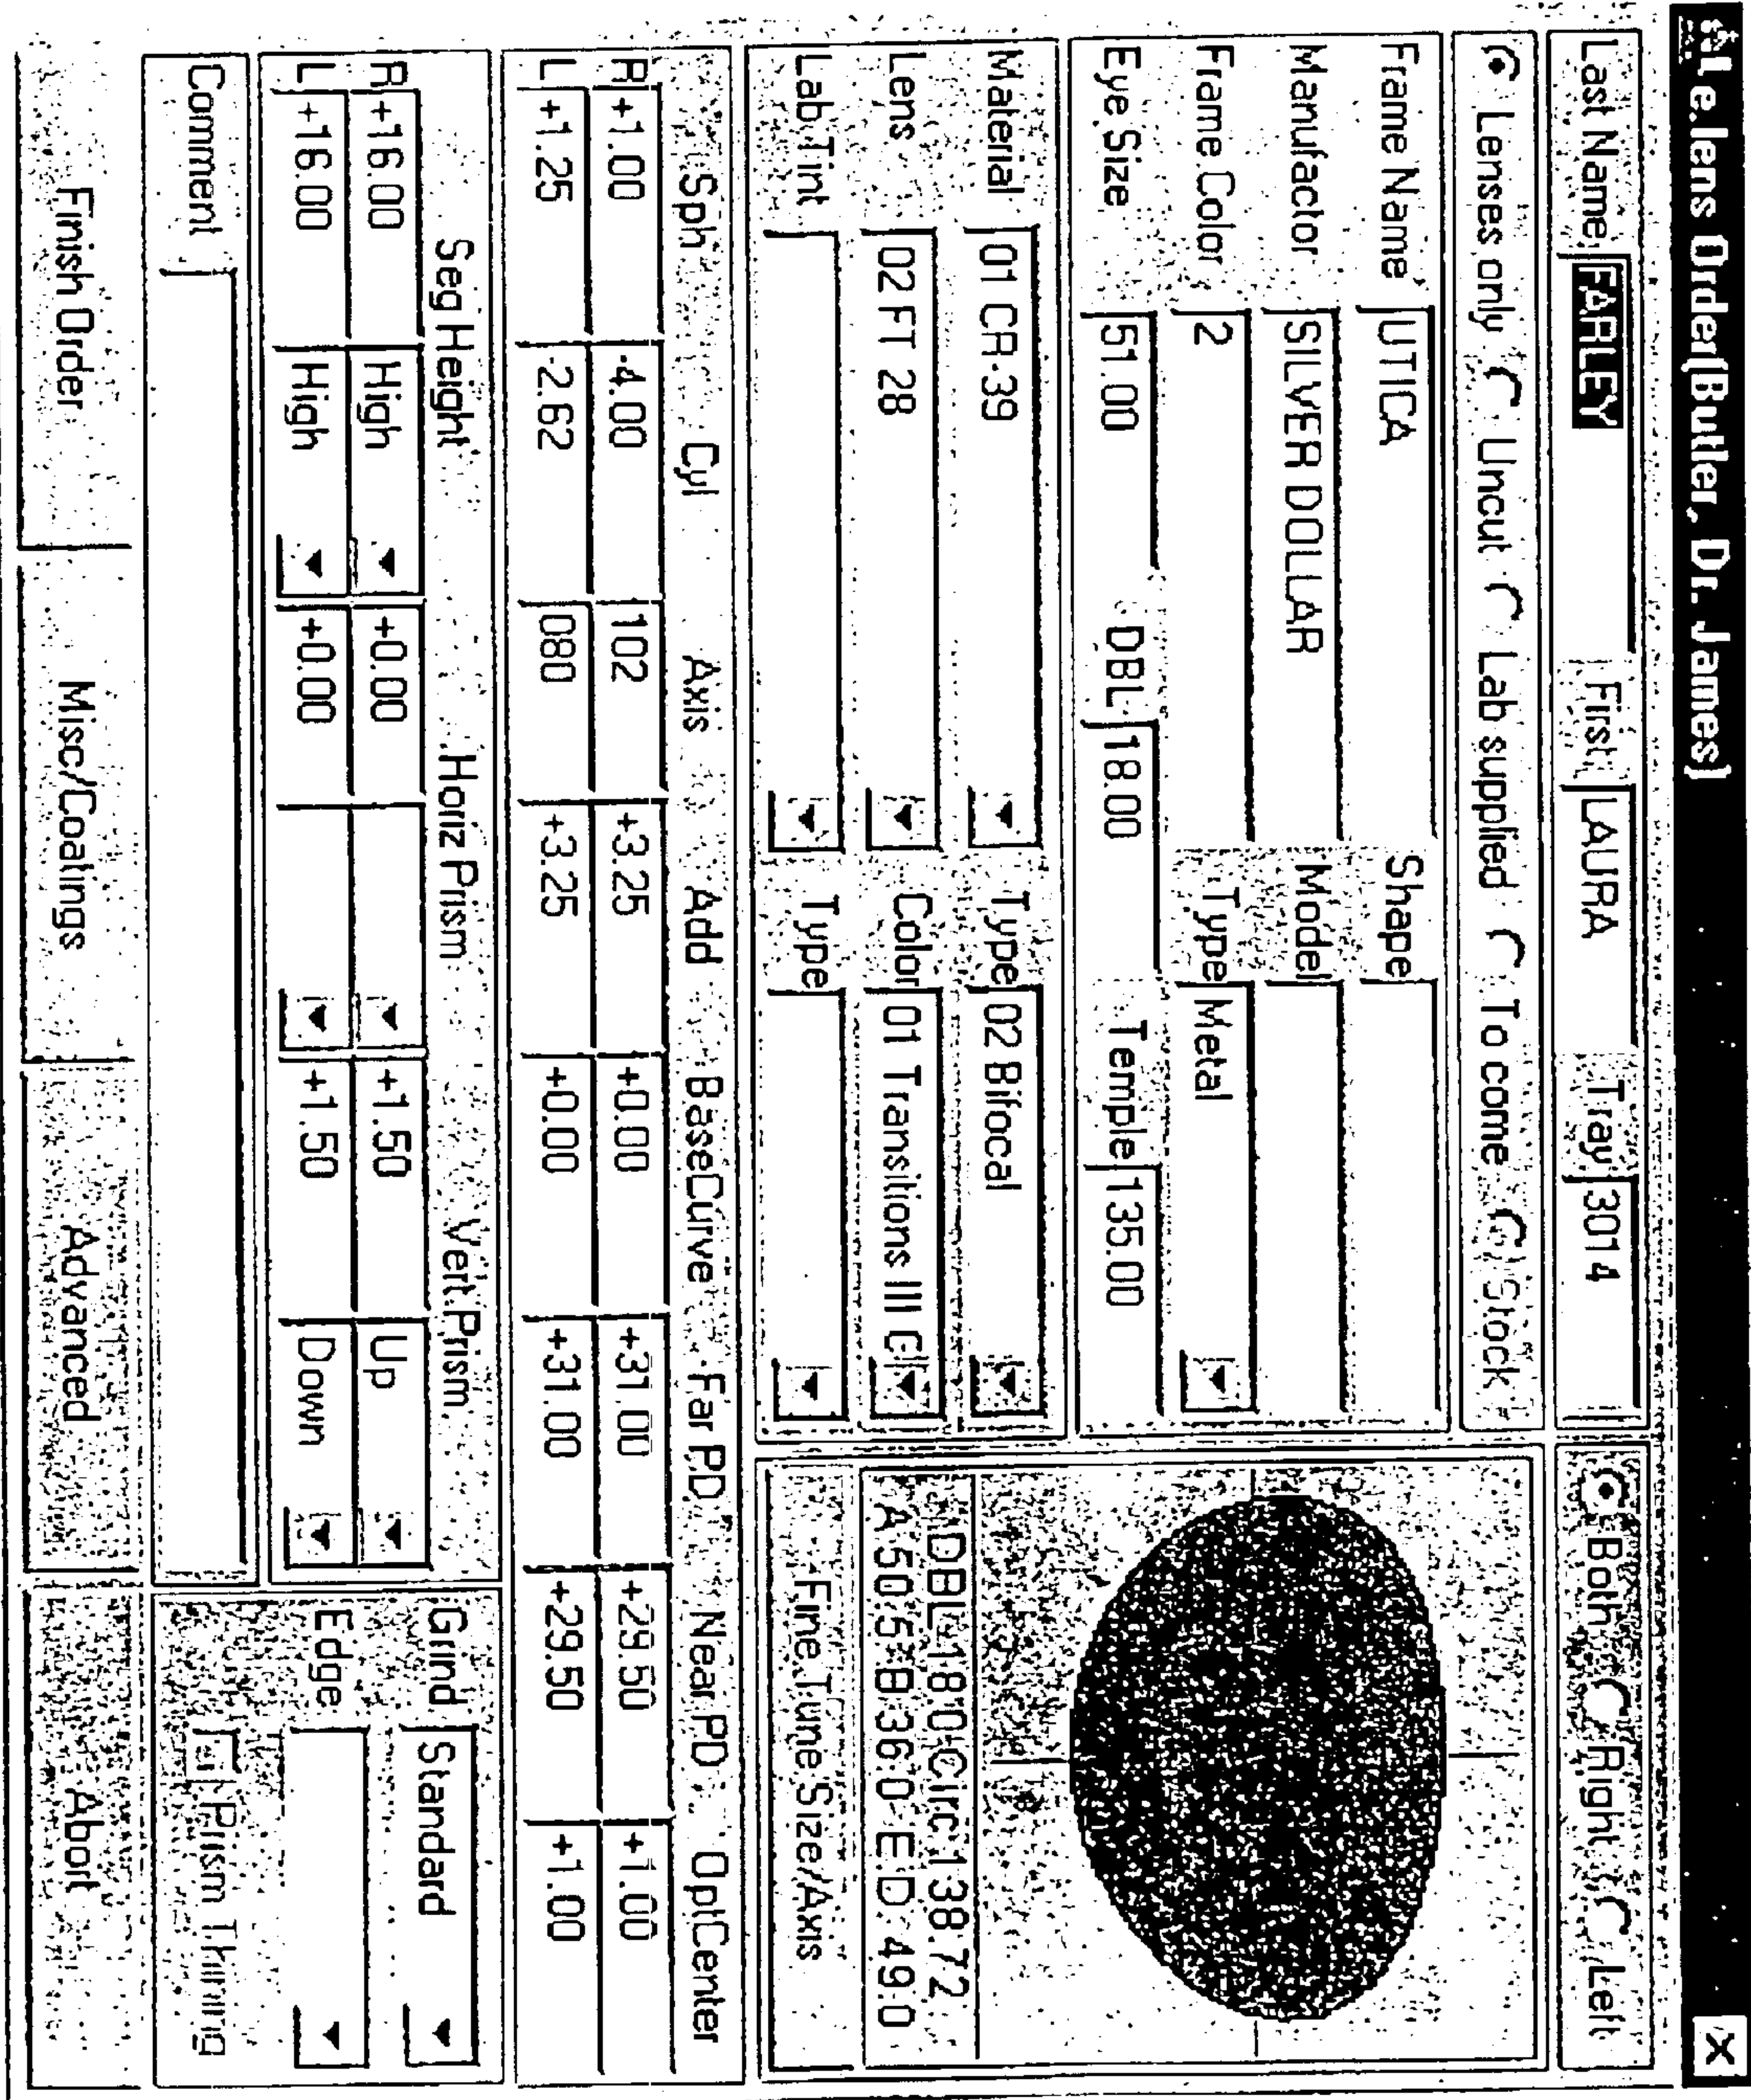 e.lens Order(Butler, Dr. James) X
Last Name FARLEY First LAURA Tray 3014 Both Right Left
Lenses only Uncut Lab supplied To come Stock
Frame Name UTICA Shape
Manufactor SILVER DOLLAR Model
Frame Color 2 Type Metal
Eye Size 51.00 DBL 18.00 Temple 135.00
Material 01 CR-39 Type 02 Bifocal
Lens 02 FT 28 Color 01 Transitions III G
Lab Tint Type
DBL 18.0 Circ 138.72
A 50.5 B 36.0 E.D. 49.0
Fine Tune Size/Axis
Sph Cyl Axis Add BaseCurve Far P.D. Near PD OptCenter
R +1.00 -4.00 102 +3.25 +0.00 +31.00 +29.50 +1.00
L +1.25 -2.62 080 +3.25 +0.00 +31.00 +29.50 +1.00
Seg Height Horiz Prism Vert Prism
R +16.00 High +0.00 +1.50 Up
L +16.00 High +0.00 +1.50 Down
Grind Standard
Edge
Prism Thining
Comment
Finish Order Misc/Coatings Advanced Abort